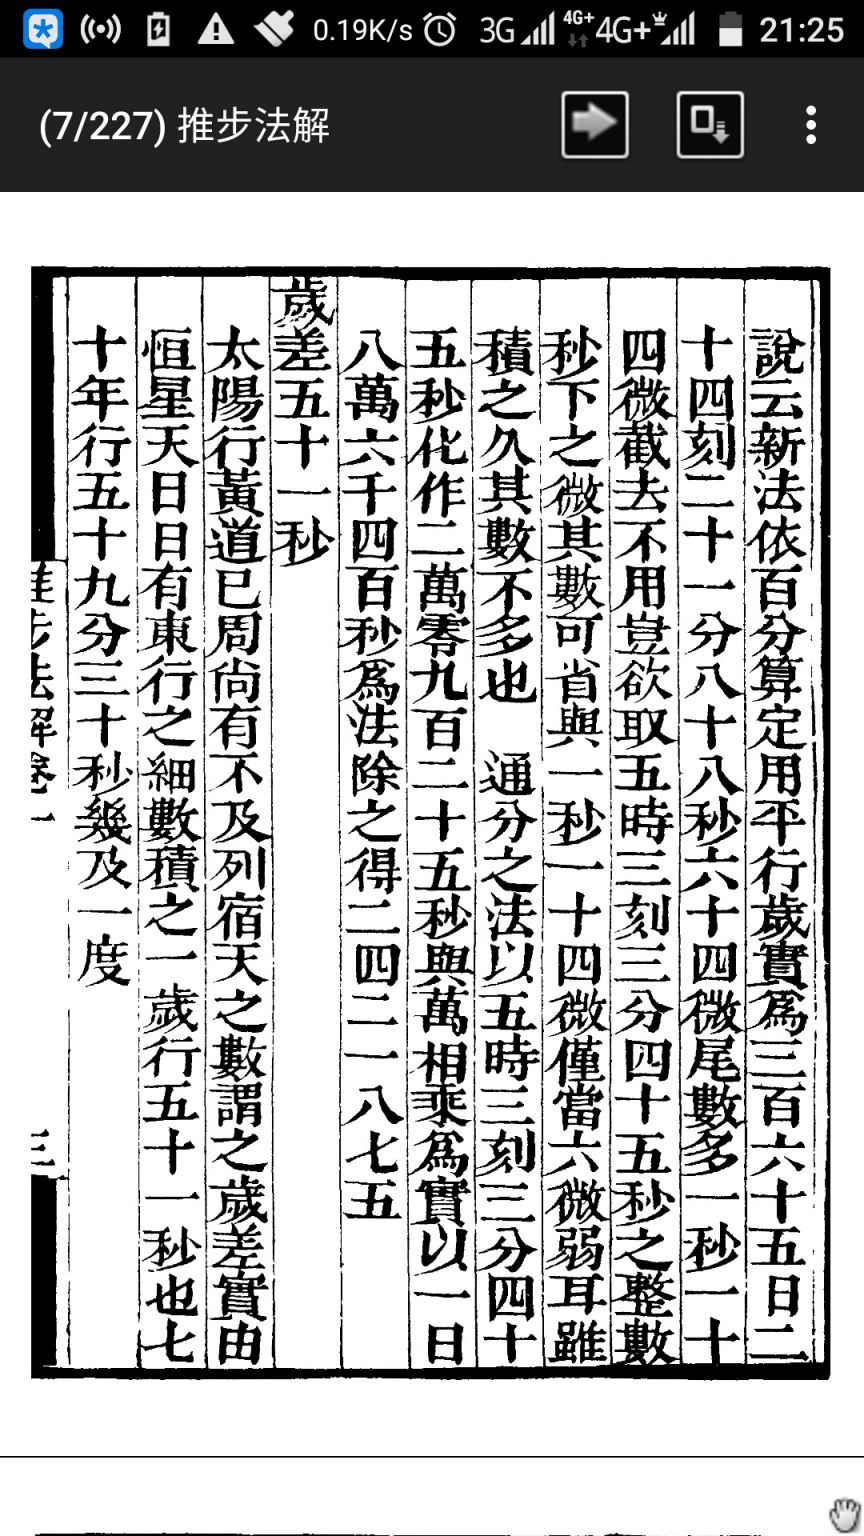 0.19K/s 3G 4G+ 4G+ 21:25
(7/227) 推步法解
說云新法依百分算定用平行歲實爲三百六十五日二
十四刻二十一分八十八秒六十四微尾數多一秒一十
四微截去不用豈欲取五時三刻三分四十五秒之整數
秒下之微其數可省與一秒一十四微僅當六微弱耳雖
積之久其數不多也　通分之法以五時三刻三分四十
五秒化作二萬零九百二十五秒與萬相乘爲實以一日
八萬六千四百秒爲法除之得二四二一八七五
歲差五十一秒
太陽行黃道已周尚有不及列宿天之數謂之歲差實由
恒星天日日有東行之細數積之一歲行五十一秒也七
十年行五十九分三十秒幾及一度
推步法解卷一
三